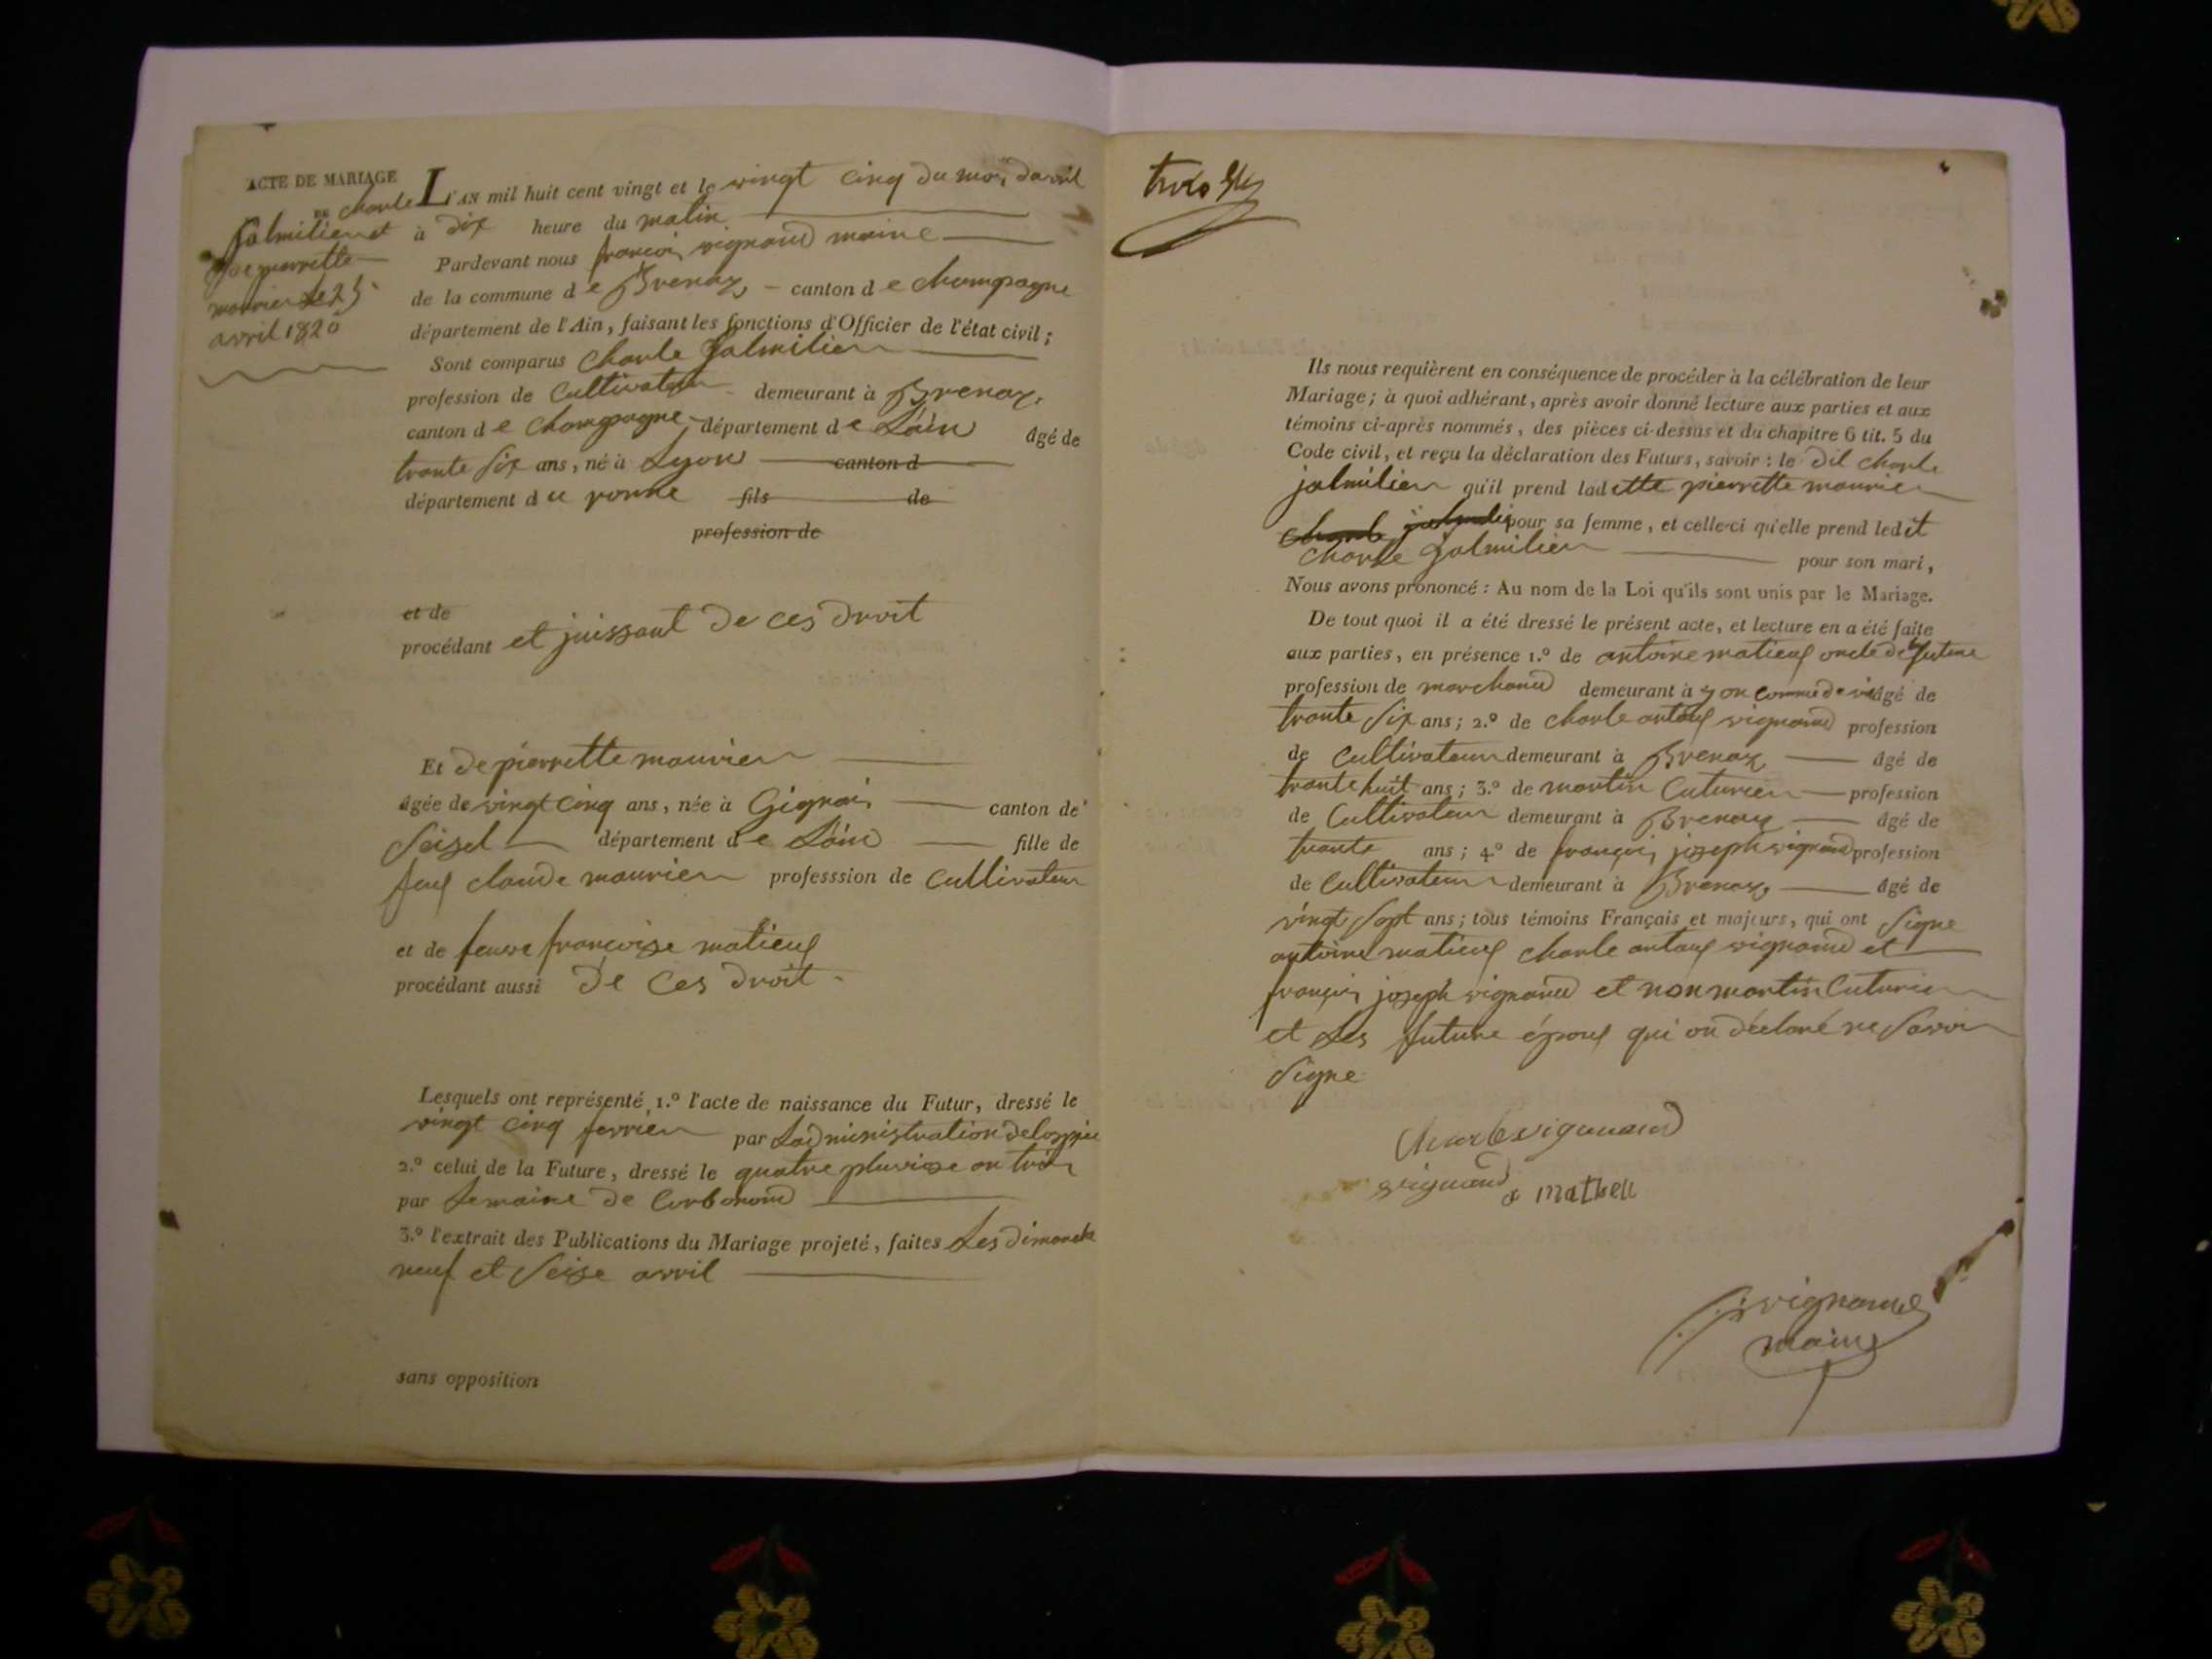 ACTE DE MARIAGE
DE Charle
Jalmilien et
de pierrette
mourier Le 25
avril 1820
L'AN mil huit cent vingt et le vingt cinq du mois davril
à dix heure du matin
Pardevant nous françois vignand maire
de la commune de Brenaz, canton de Champagne
département de l'Ain, faisant les fonctions d'Officier de l'état civil;
Sont comparus Charle Jalmilien
profession de Cultivateur demeurant à Brenaz,
canton de Champagne département de Lain âgé de
trante six ans, né à Lyon canton d
département du ronne fils de
profession de
et de
procédant et juissant de ces droit
Et de pierrette mourier
âgée de vingt cinq ans, née à Gignai canton de
Seisel département de Lain fille de
feux claude mourier professsion de Cultivateur
et de feuve françoise matieux
procédant aussi de ces droit
Lesquels ont représenté 1.º l'acte de naissance du Futur, dressé le
vingt cinq ferrier par Ladministration
2.º celui de la Future, dressé le quatre pluviose an trois
par Lemaire de Corbonond
3.º l'extrait des Publications du Mariage projeté, faites Les dimanche
neuf et Seise avril
sans opposition
Ils nous requièrent en conséquence de procéder à la célébration de leur
Mariage; à quoi adhérant, après avoir donné lecture aux parties et aux
témoins ci-après nommés, des pièces ci-dessus et du chapitre 6 tit. 5 du
Code civil, et reçu la déclaration des Futurs, savoir : le dit charle
jalmilien qu'il prend ladette pierrette mourier
pour sa femme, et celle-ci qu'elle prend ledit
Charle Jalmilien pour son mari,
Nous avons prononcé : Au nom de la Loi qu'ils sont unis par le Mariage.
De tout quoi il a été dressé le présent acte, et lecture en a été faite
aux parties, en présence 1.º de antoine matieux oncle de future
profession de marchand demeurant à âgé de
trante six ans; 2.º de charle antoux vignand profession
de Cultivateur demeurant à Brenaz âgé de
trante huit ans; 3.º de martin Cuturier profession
de Cultivateur demeurant à Brenaz âgé de
trante ans; 4.º de françois joseph vignand profession
de Cultivateur demeurant à Brenaz, âgé de
vingt sept ans; tous témoins Français et majeurs, qui ont Signe
antoine matieux charle antoux vignand et
françois joseph vignand et non martin Cuturier
et Les future époux qui on déclaré ne savoir
Signe
Charle vignand
vignand
a mathell
vignand
maire